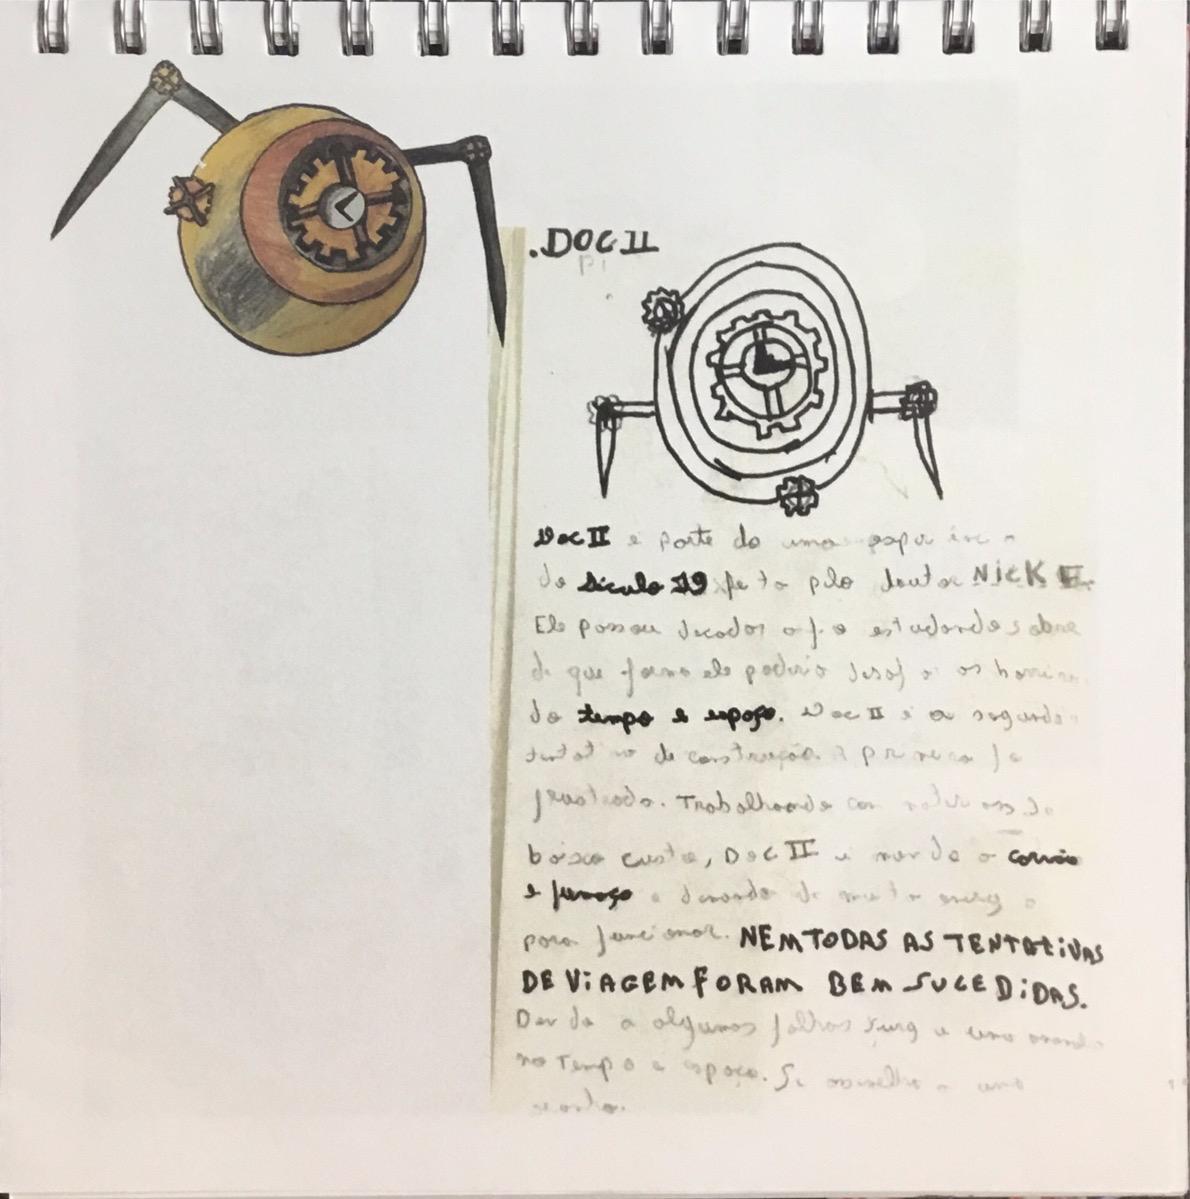 .DOC II
Doc II é parte de uma
do século 19 feito pelo doutor NICK E.
Ele passou décadas estudando sobre
de que forma ele poderia os
do tempo e espaço. Doc II é a segunda
de construção. A primeira foi
frustrada. Trabalhando com
baixo custo, Doc II é a carvão
e fumaça e demanda de muita energia
para funcionar. NEM TODAS AS TENTATIVAS
DE VIAGEM FORAM BEM SUCEDIDAS.
a algumas falhas surge uma
no Tempo e espaço. Se a uma